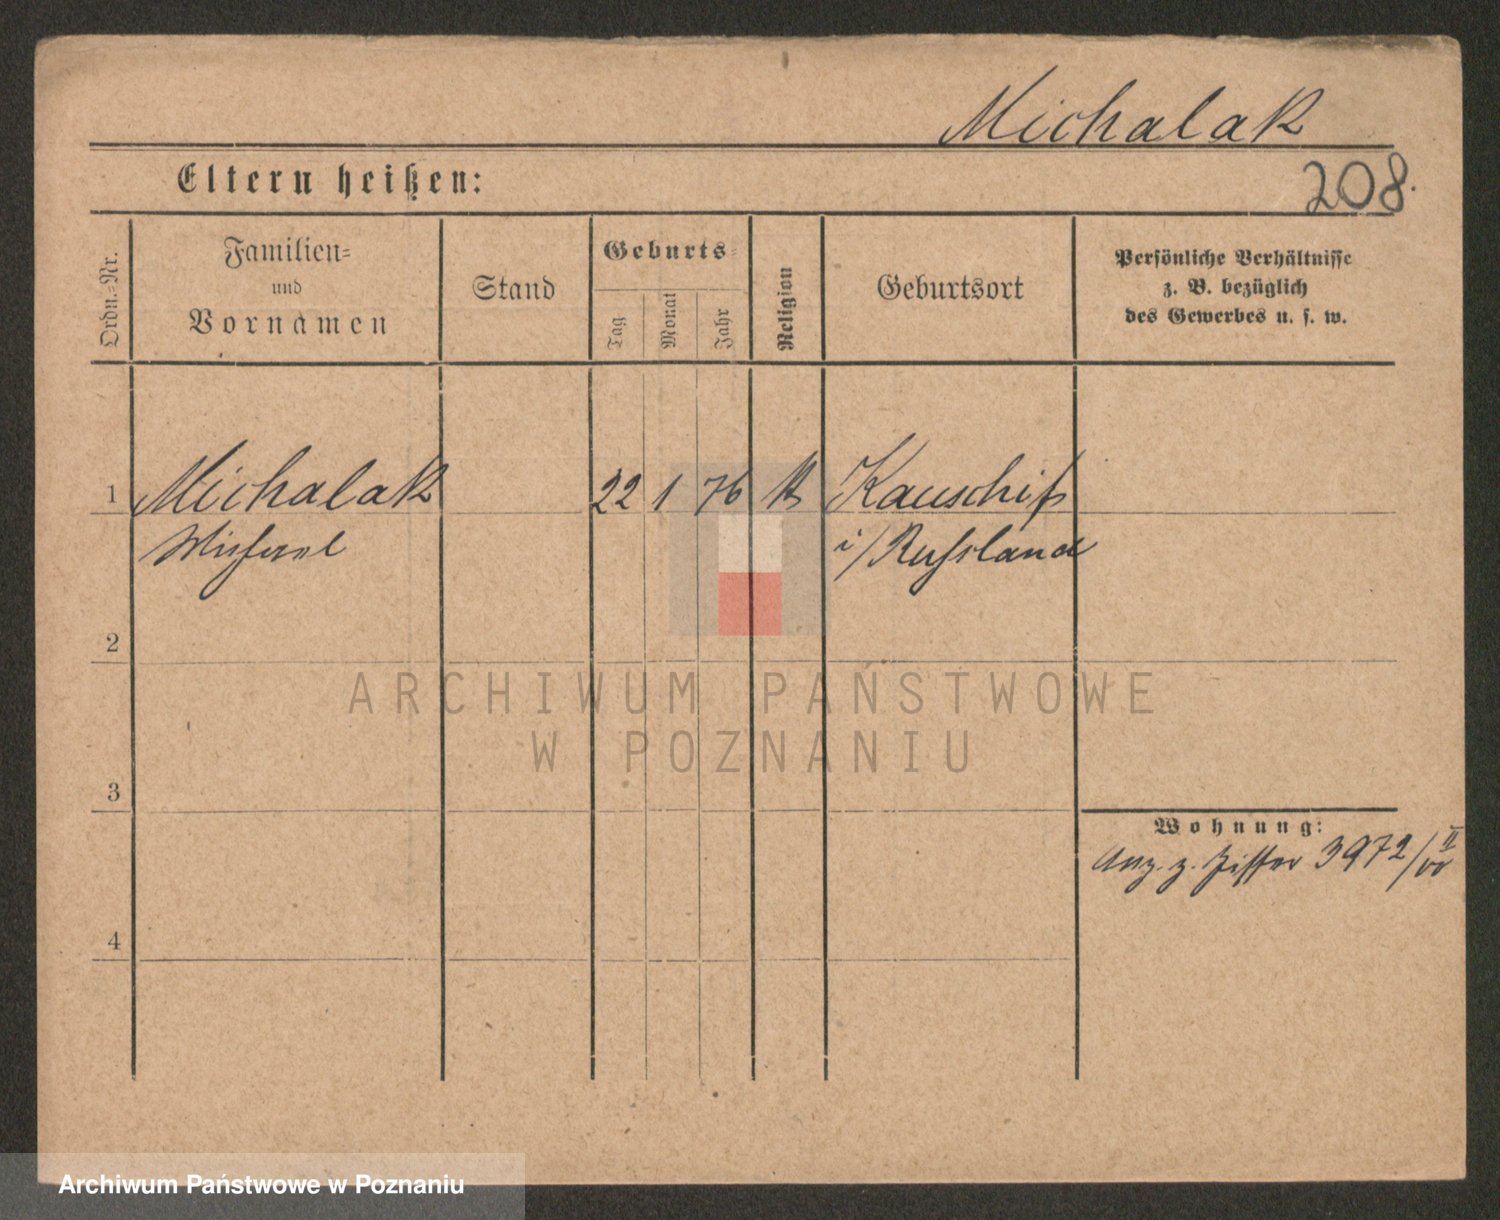 Michalak
Eltern heißen:
208.
Ordn.-Nr.
Familien-
und
Vornamen
Stand
Geburts-
Tag
Monat
Jahr
Religion
Geburtsort
Persönliche Verhältnisse
z. B. bezüglich
des Gewerbes u. s. w.
1 Michalak 22 1 76 k Kauschiß
Michael i/Russland
2
ARCHIWUM PAŃSTWOWE
W POZNANIU
3
Wohnung:
Anz. z. Ziffer 3972/
4
Archiwum Państwowe w Poznaniu